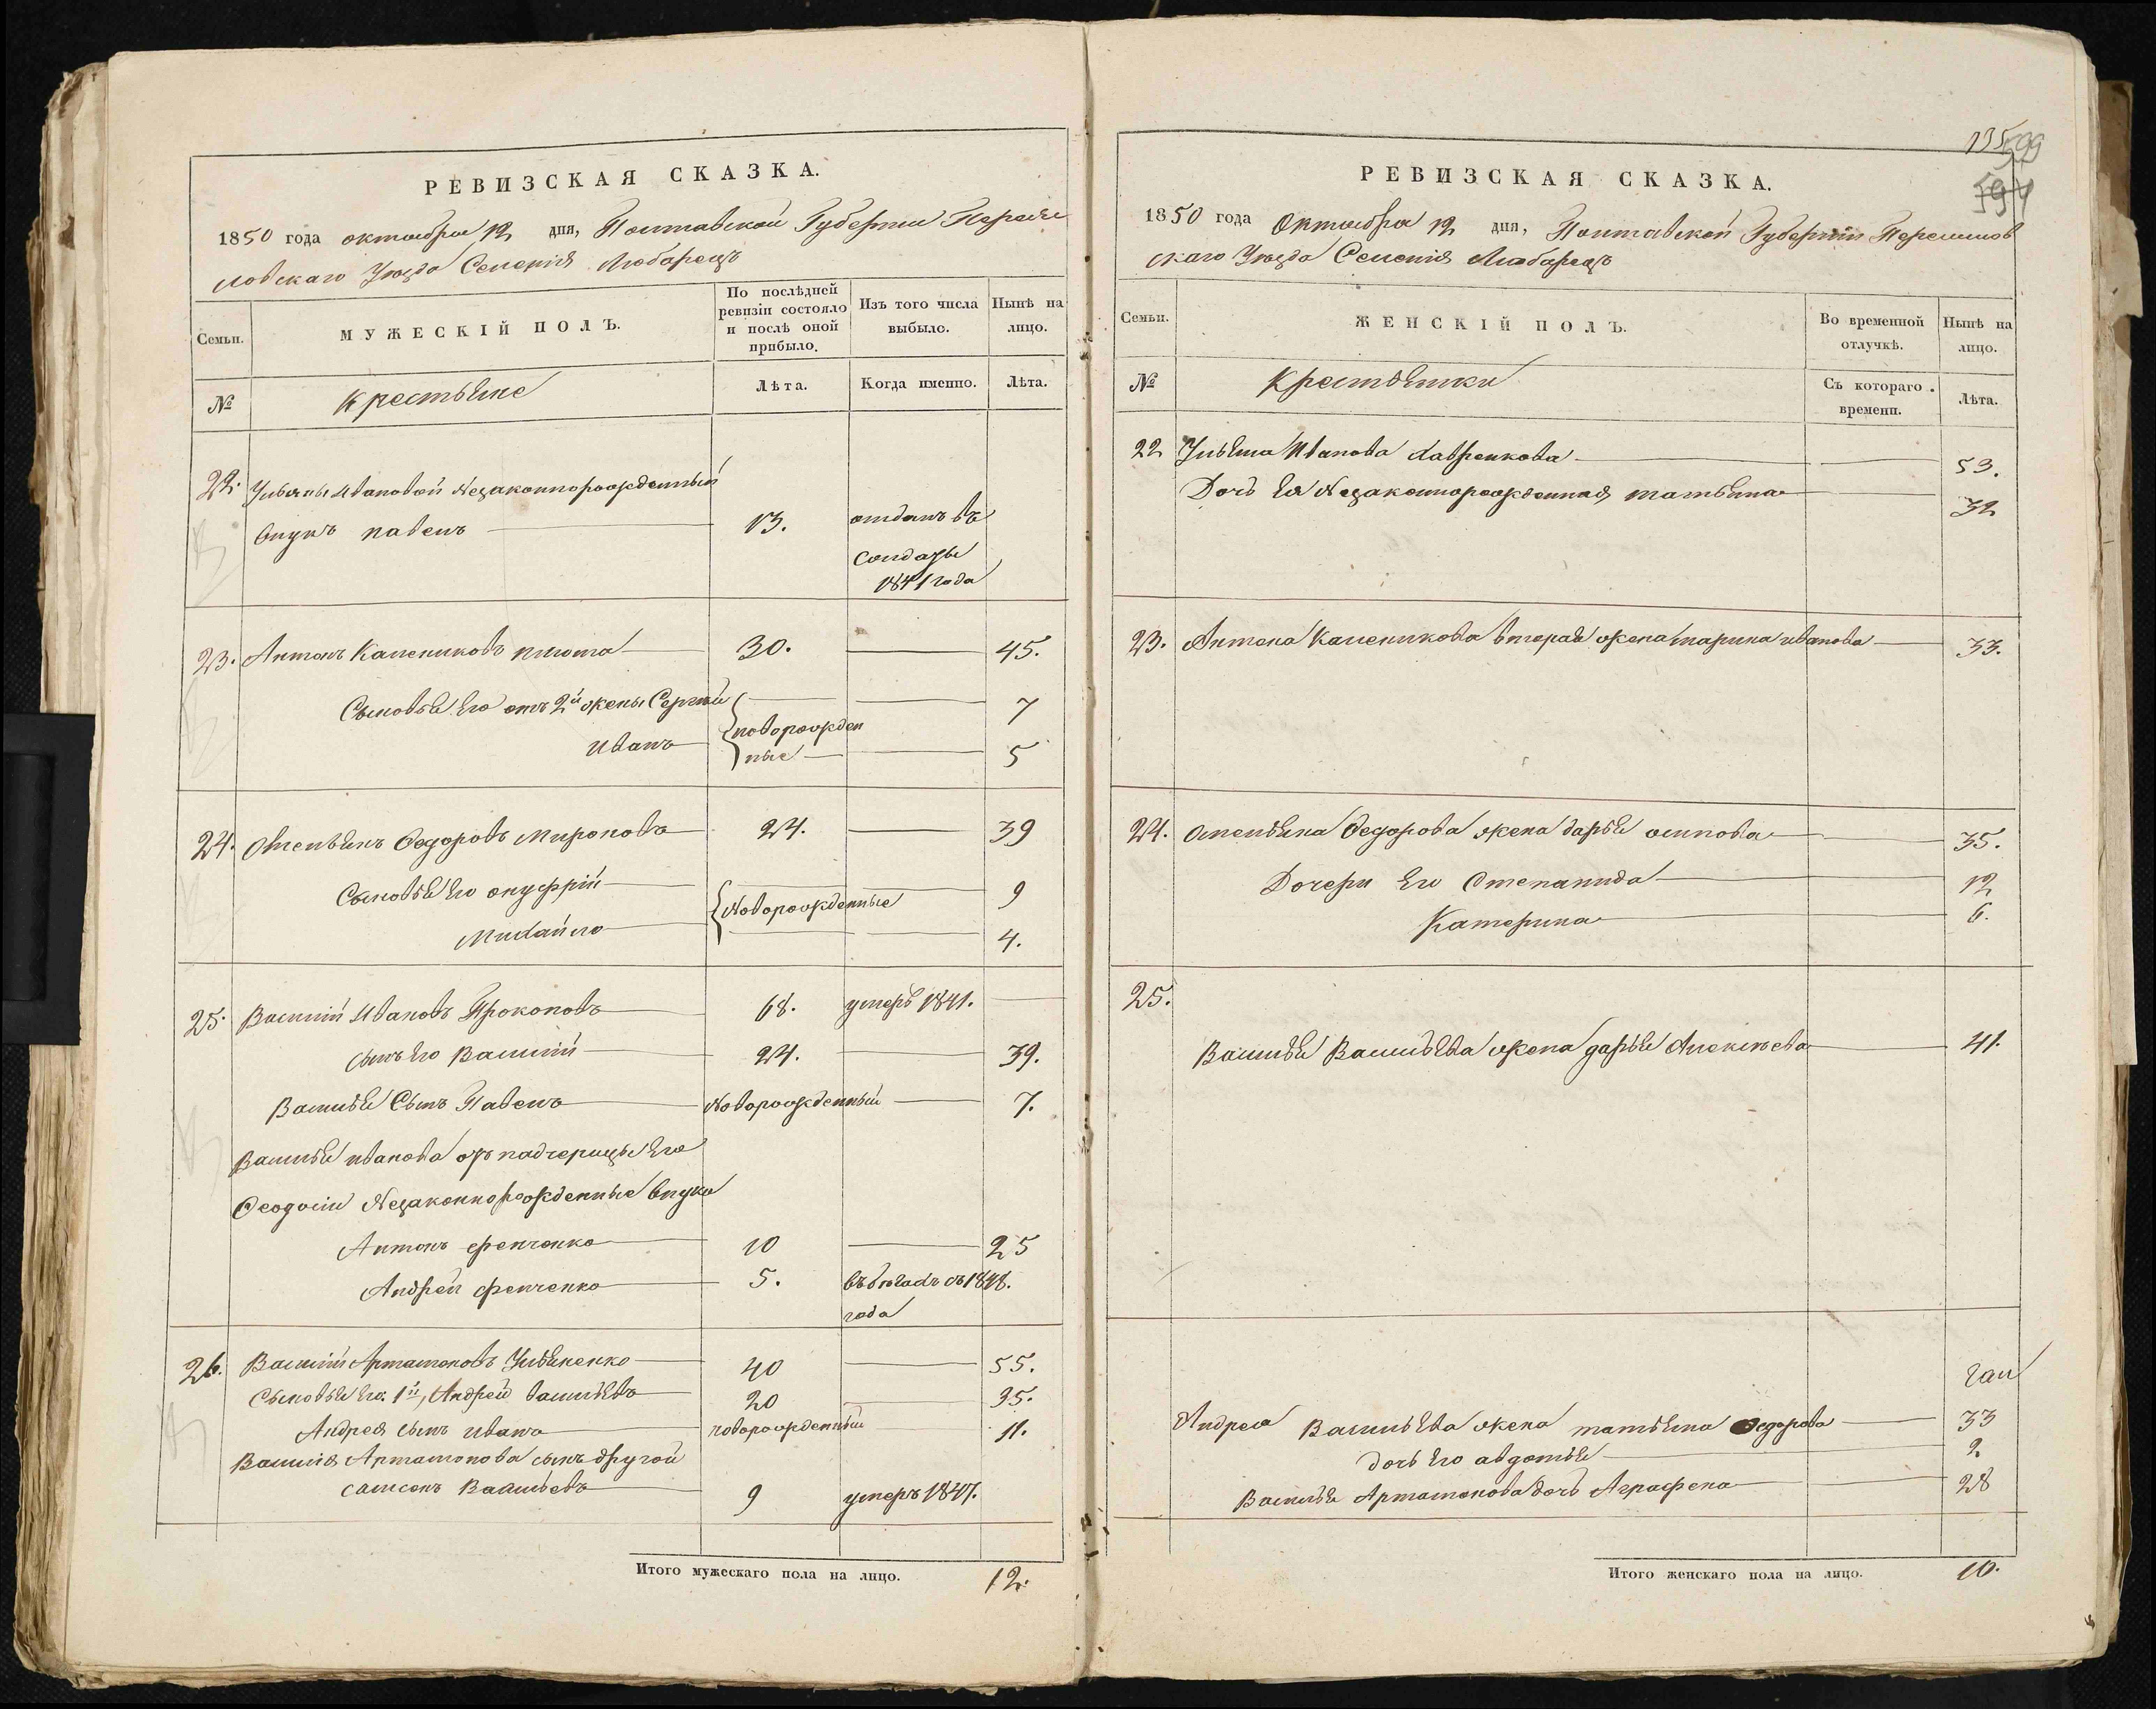 РЕВИЗСКАЯ СКАЗКА.
1850 года октября 12 дня, Полтавской Губернии Переяс
ловскаго Уезда Селения Любарецъ
Семьи.
МУЖЕСКІЙ ПОЛЪ.
По послѣдней ревизіи состояло и послѣ оной прибыло.
Изъ того числа выбыло.
Нынѣ на лицо.
№
крестьяне
Лѣта.
Когда именно.
Лѣта.
22. Ульяны Ивановой Незаконнорожденный
внукъ павелъ 13. отданъ въ
солдаты
1841 года
23. Антонъ Калениковъ 30. 45.
Сыновья Его отъ 2й жены Сергѣй 7
новорожден
иванъ ные 5
24. Омельянъ Федоровъ Мироновъ 24. 39
Сыновья Его онуфрій 9
Новорожденные
Михайло 4.
25. Василий Ивановъ Прокоповъ 68. умеръ 1841.
сынъ Его Василий 24. 39.
Василья Сынъ Павелъ Новорожденный 7.
Василья иванова отъ падчерицы Его
Феодосии Незаконнорожденные внуки
Антонъ фенченко 10 25
Андрей фенченко 5. въ бегахъ съ 1848.
года
26. Василий Артамоновъ Ульяненко 40 55.
Сыновья Его: 1й, Андрей васильевъ 20 35.
Андрея сынъ иванъ новорожденный 11.
Василия Артамонова сынъ другой
самсонъ Васильевъ 9 умеръ 1847.
Итого мужескаго пола на лицо. 12.
135
599
594
РЕВИЗСКАЯ СКАЗКА.
1850 года Октября 12 дня, Полтавской Губернии Переяслов
скаго Уезда Селения Любарецъ
Семьи.
ЖЕНСКІЙ ПОЛЪ.
Во временной отлучкѣ.
Нынѣ на лицо.
№
Крестьянки
Съ котораго времени.
Лѣта.
22 Ульяна Иванова Лавренкова 53.
Дочь Ея Незаконнорожденная татьяна 32
23. Антона Каленикова вторая жена марина иванова 33.
24. Омельяна Федорова жена дарья осипова 35.
Дочери Его Степанида 12
Катерина 6.
25.
Василья Васильева жена дарья Алексѣева 41.
Андрея Васильева жена татьяна Федорова 33
дочь Его авдотья 2.
Василья Артамонова дочь Аграфена 28
Итого женскаго пола на лицо. 10.